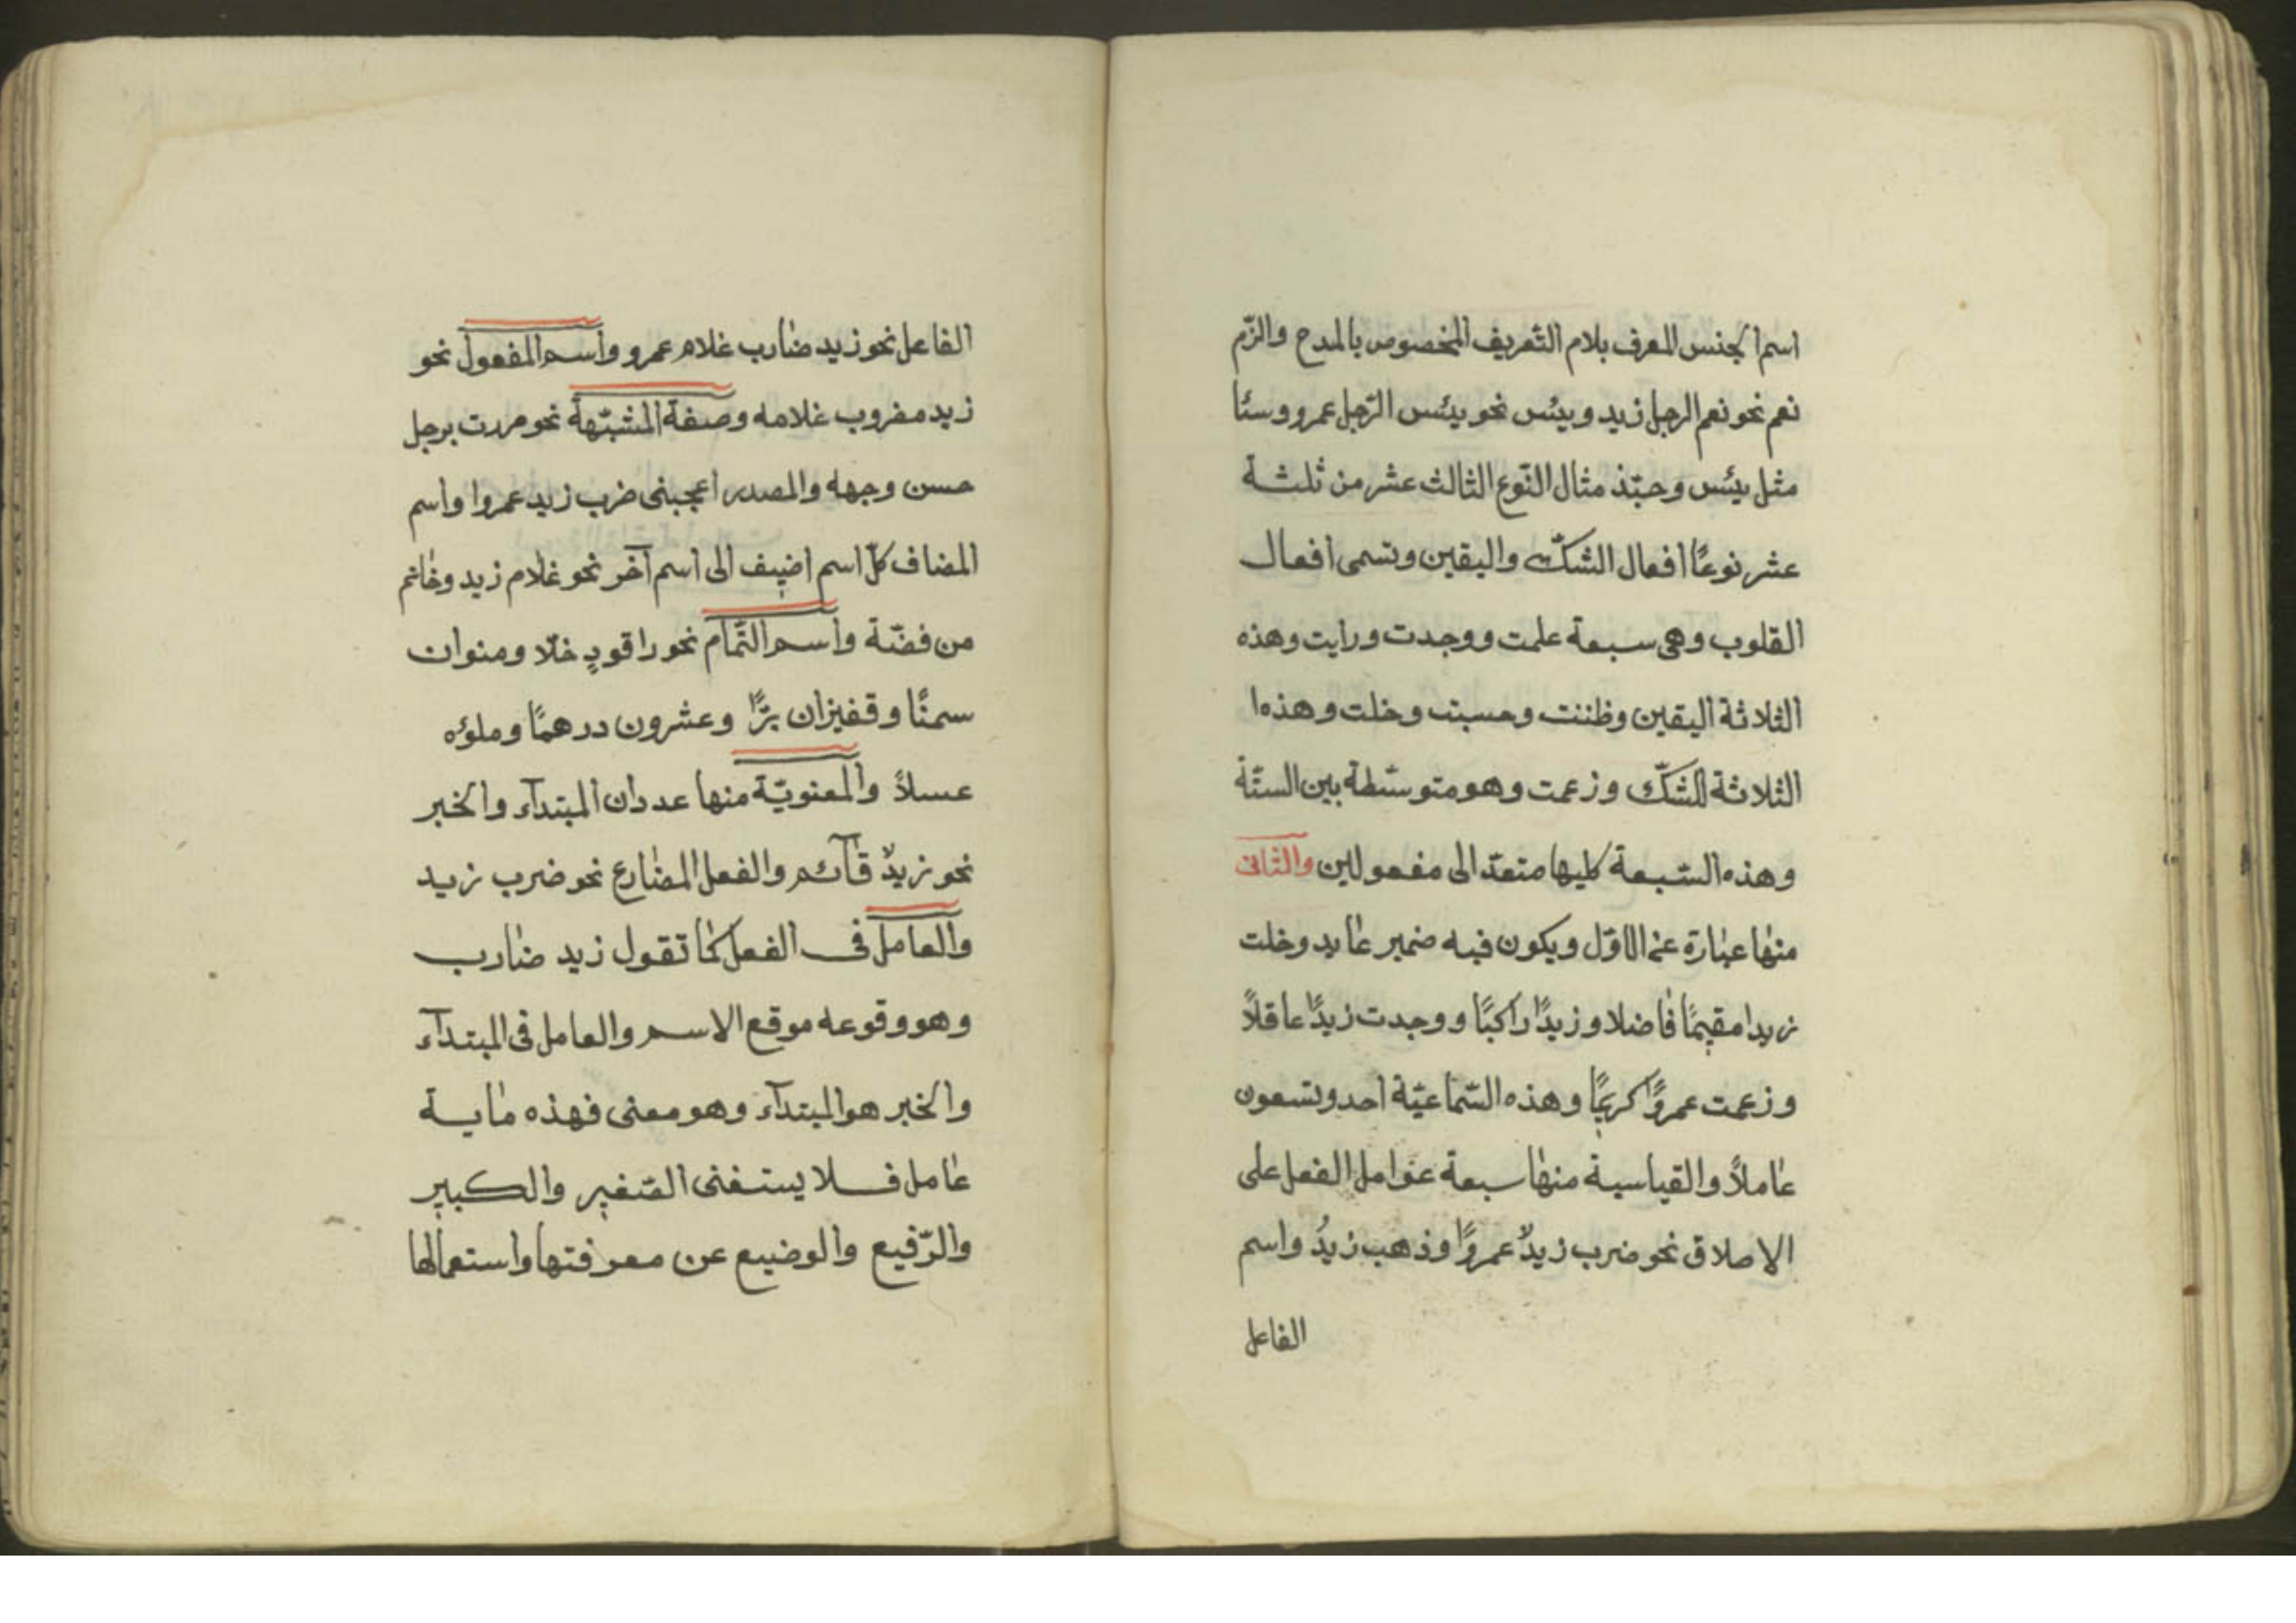 اسم الجنس المعرف بلام التّعريف المخصوص بالمدح والزّم
نعم نحو نعم الرجل زيد وبيئس نحو بيئس الرّجل عمرو وسئا
مثل بيئس وحبّذ مثال النّوع الثالث عشر من ثلثة
عشر نوعًا افعال الشكّ واليقين وتسمى افعال
القلوب وهى سبعة علمت ووجدت ورايت وهذه
الثلاثة اليقين وظننت وحسبت وخلت وهذه ا
الثلاثة للشكّ وزعمت وهو متوسّطة بين الستّة
وهذه السّبعة كليها متعدّ الى مفعولين والثانى
منها عبارة عن الاوّل ويكون فيه ضمير عايد وخلت
زيدا مقيمًا فاضلا وزيدًا راكبًا ووجدت زيدًا عاقلاً
وزعمت عمروًا كريمًا وهذه السّماعيّة احد وتسعون
عاملاً والقياسية منها سبعة عوامل الفعل على
الاصلاق نحو ضرب زيدٌ عمروًا وذهب زيدُ واسم
الفاعل
الفاعل نحو زيد ضارب غلام عمرو واسم المفعول نحو
زيد مفروب غلامه وصفة المشبّهة نحو مررت برجل
حسن وجهه والمصدر اعجبنى ضرب زيد عمروا واسم
المضاف كلّ اسم اضيف الى اسم آخر نحو غلام زيد وخاتم
من فضّة واسم التّمام نحو راقودٍ خلّا ومنوان
سمنًا وقفيزان برًّا وعشرون درهمًا وملؤه
عسلاً والمعنويّة منها عددان المبتدآء والخبر
نحو زيدٌ قآئم والفعل المضارع نحو ضرب زيد
والعامل فى الفعل كما تقول زيد ضارب
وهو وقوعه موقع الاسم والعامل فى المبتدآء
والخبر هو المبتدآء وهو معنى فهذه ماية
عامل فلا يستغنى الصّغير والكبير
والرّفيع والوضيع عن معرفتها واستعمالها